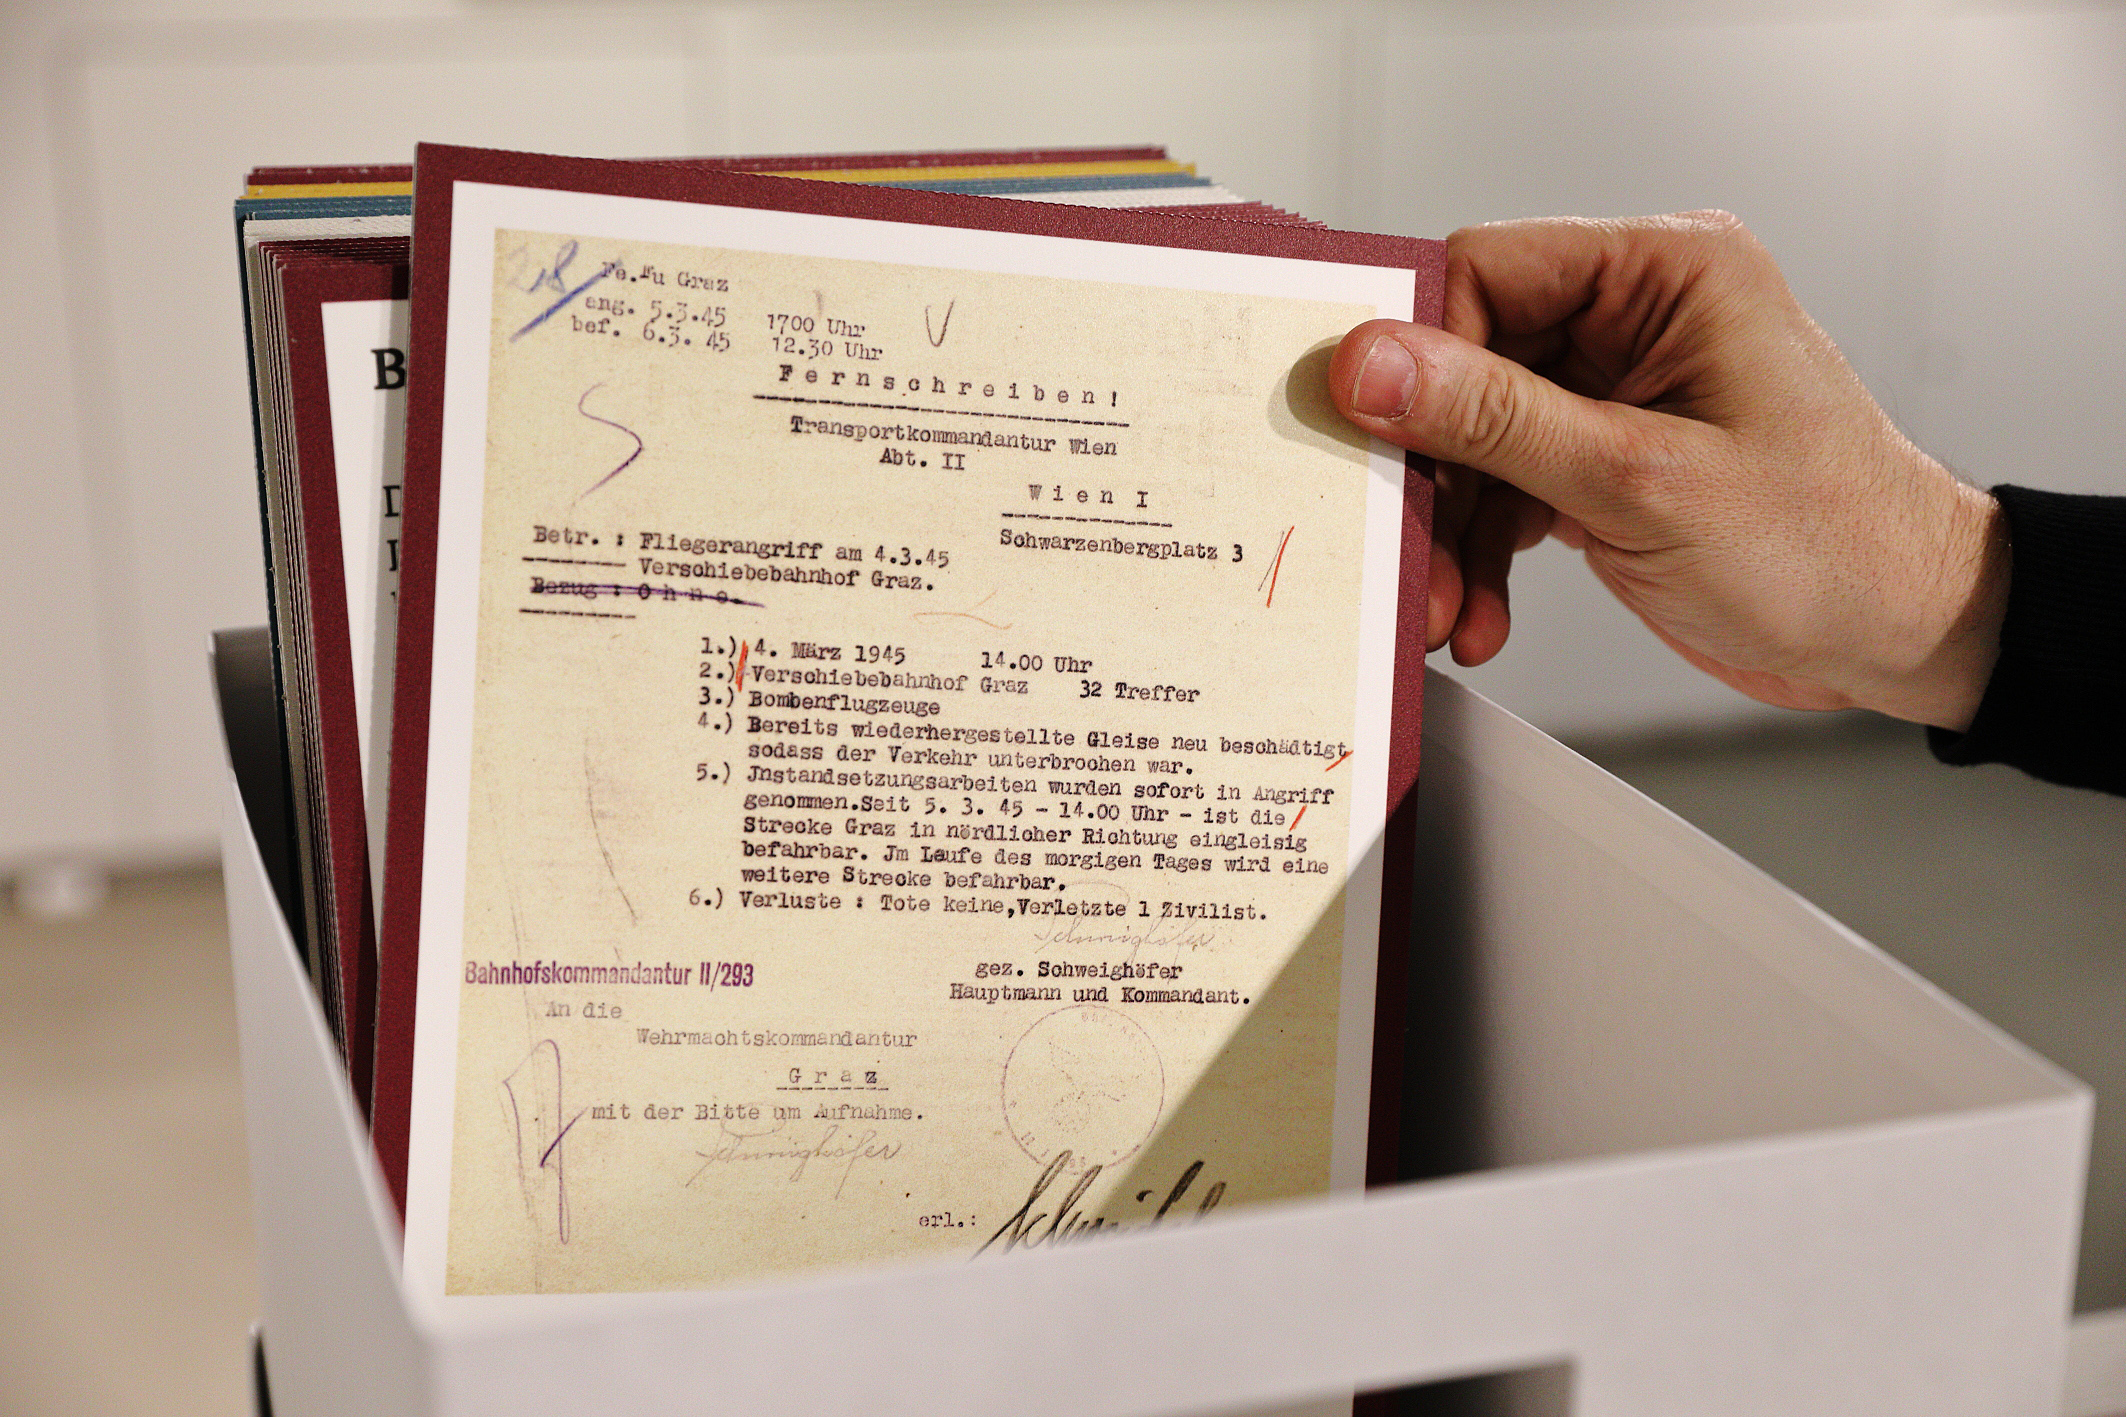 Fe.Fu Graz
eng. 5.3.45 1700 Uhr
bef. 6.3. 45 12.30 Uhr
Fernschreiben!
Transportkommandantur Wien
Abt. II
Wien I
Schwarzenbergplatz 3
Betr. : Fliegerangriff am 4.3.45
Verschiebebahnhof Graz.
Bezug : Ohne.
1.) 4. März 1945 14.00 Uhr
2.) Verschiebebahnhof Graz 32 Treffer
3.) Bombenflugzeuge
4.) Bereits wiederhergestellte Gleise neu beschädigt,
sodass der Verkehr unterbrochen war.
5.) Jnstandsetzungsarbeiten wurden sofort in Angriff
genommen.Seit 5. 3. 45 - 14.00 Uhr - ist die
Strecke Graz in nördlicher Richtung eingleisig
befahrbar. Jm Laufe des morgigen Tages wird eine
weitere Strecke befahrbar.
6.) Verluste : Tote keine,Verletzte 1 Zivilist.
Schweighöfer
gez. Schweighöfer
Hauptmann und Kommandant.
Bahnhofskommandantur II/293
An die
Wehrmachtskommandantur
Graz
mit der Bitte um Aufnahme.
Schweighöfer
erl.: